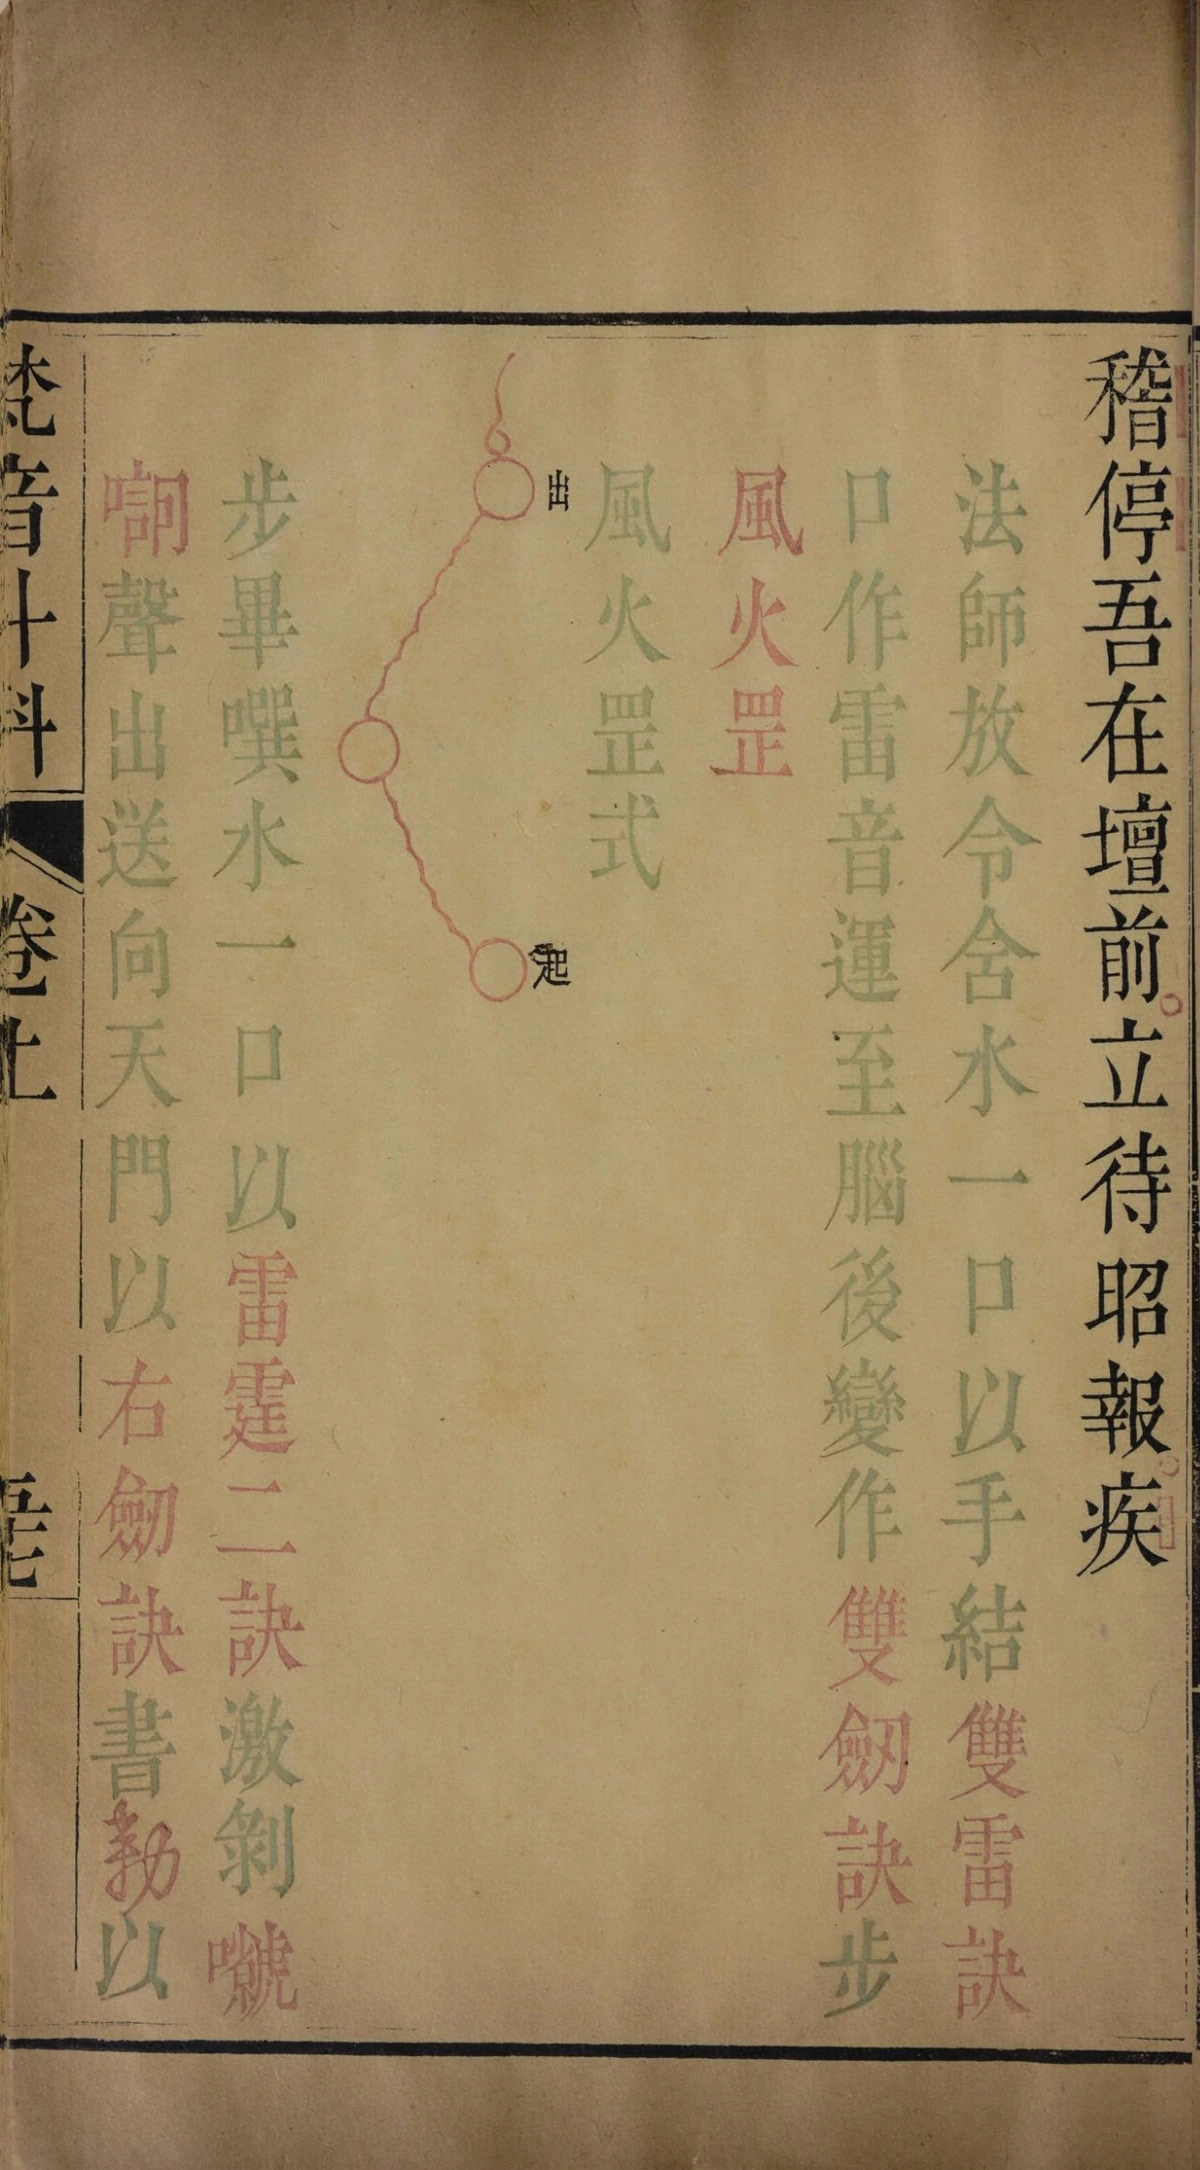 稽停吾在壇前立待昭報疾
法師放令舍水一口以手結雙雷訣
口作雷音運至腦後變作雙劒訣步
風火罡
風火罡式
出
起
步畢噀水一口以雷霆二訣激剝
聲出送向天門以右劒訣書勅以
梵音斗科
卷上